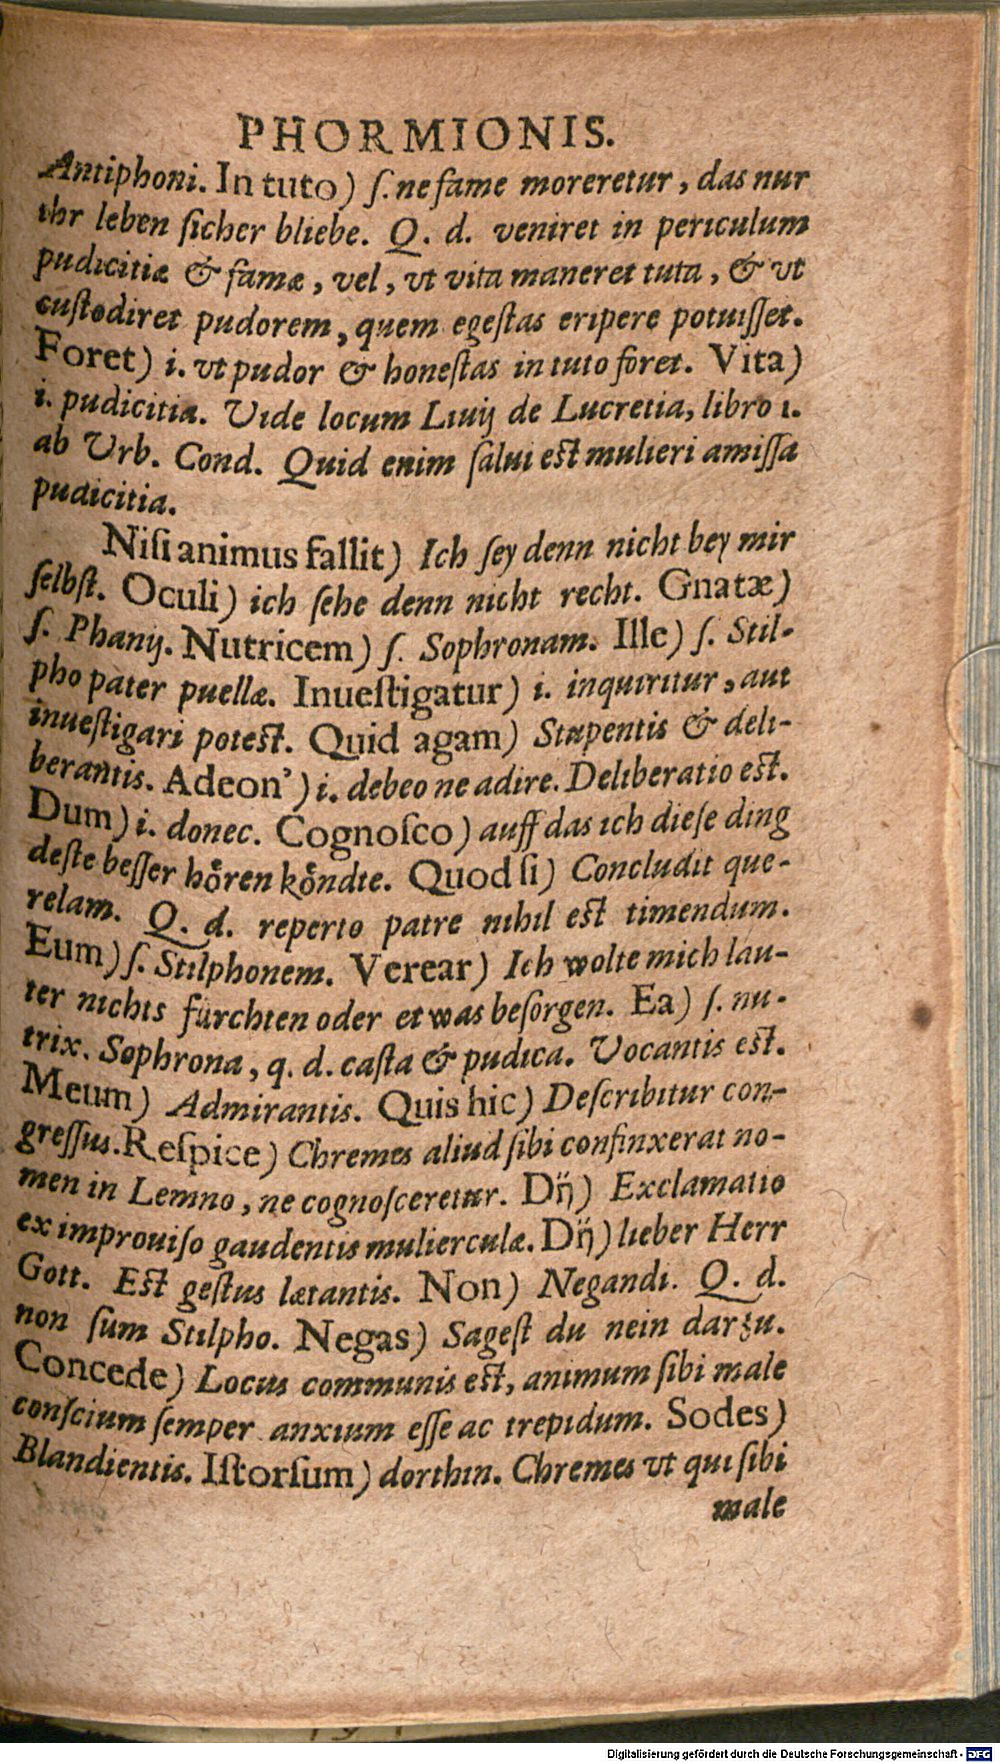 PHORMIONIS.
Antiphoni. In tuto) ſ. ne fame moreretur, das nur
ihr leben ſicher bliebe. Q. d. veniret in periculum
pudicitiæ & famæ, vel, vt vita maneret tuta, & vt
cuſtodiret pudorem, quem egeſtas eripere potuiſſet.
Foret) i. vt pudor & honeſtas in tuto foret. Vita)
i. pudicitia. Vide locum Liuij de Lucretia, libro 1.
ab Vrb. Cond. Quid enim ſalui eſt mulieri amiſſa
pudicitia.
Niſi animus fallit) Ich ſey denn nicht bey mir
ſelbſt. Oculi) ich ſehe denn nicht recht. Gnatæ)
ſ. Phanij. Nutricem) ſ. Sophronam. Ille) ſ. Stil-
pho pater puellæ. Inueſtigatur) i. inquiritur, aut
inueſtigari poteſt. Quid agam) Stupentis & deli-
berantis. Adeon') i. debeo ne adire. Deliberatio eſt.
Dum) i. donec. Cognoſco) auff das ich dieſe ding
deſte beſſer hoͤren koͤndte. Quod ſi) Concludit que-
relam. Q. d. reperto patre nihil eſt timendum.
Eum) ſ. Stilphonem. Verear) Ich wolte mich lau-
ter nichts fürchten oder etwas beſorgen. Ea) ſ. nu-
trix. Sophrona, q. d. caſta & pudica. Vocantis eſt.
Meum) Admirantis. Quis hic) Deſcribitur con-
greſſus. Reſpice) Chremes aliud ſibi confinxerat no-
men in Lemno, ne cognoſceretur. Dij) Exclamatio
ex improuiſo gaudentis mulierculæ. Dij) lieber Herr
Gott. Eſt geſtus lætantis. Non) Negandi. Q. d.
non ſum Stilpho. Negas) Sageſt du nein darzu.
Concede) Locus communis eſt, animum ſibi male
conſcium ſemper anxium eſſe ac trepidum. Sodes)
Blandientis. Iſtorſum) dorthin. Chremes vt qui ſibi
male
Digitalisierung gefördert durch die Deutsche Forschungsgemeinschaft - DFG